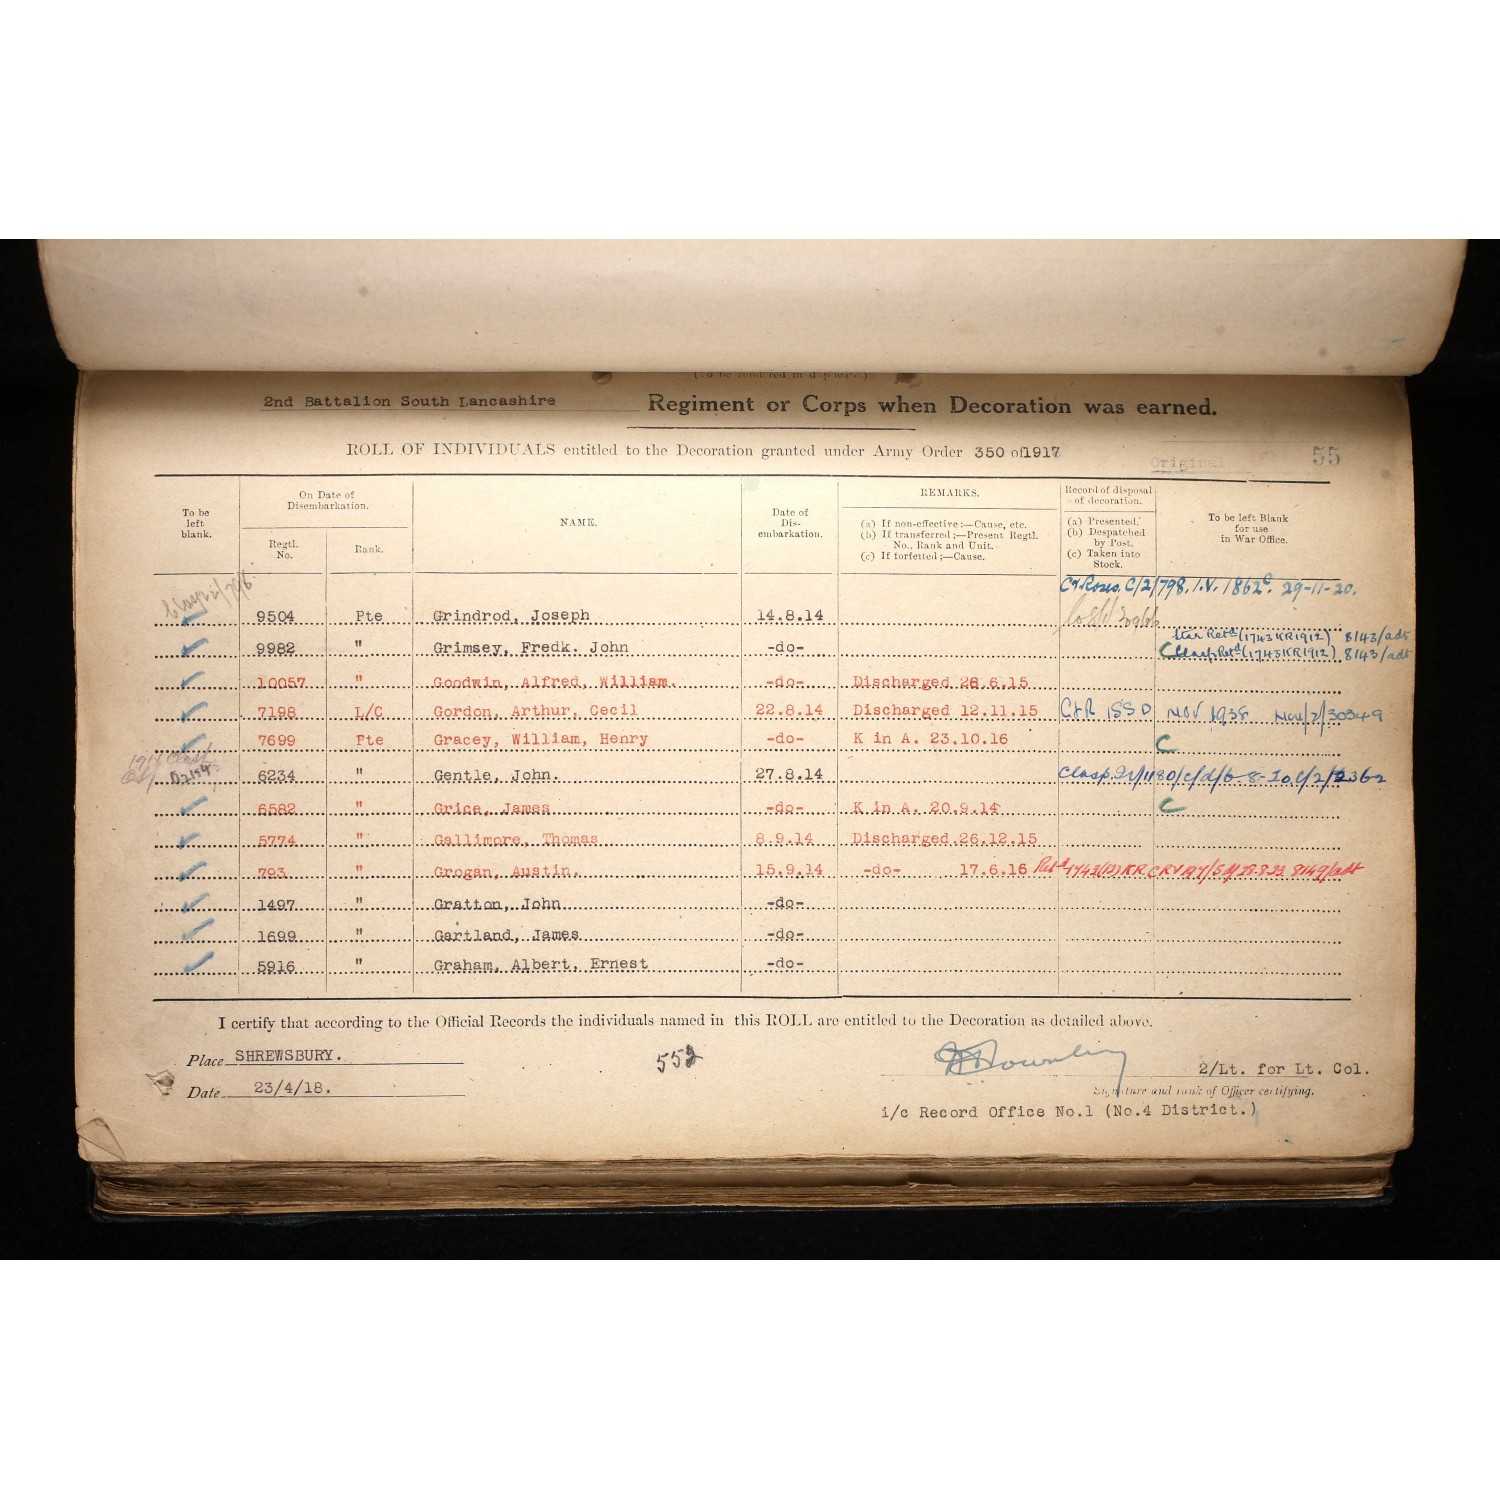 (To be rendered in duplicate.)
2nd Battalion South Lancashire Regiment or Corps when Decoration was earned.
ROLL OF INDIVIDUALS entitled to the Decoration granted under Army Order 350 of 1917
Original 55
To be left blank.
On Date of Disembarkation.
Regtl. No.
Rank.
NAME.
Date of Dis-embarkation.
REMARKS.
(a) If non-effective:—Cause, etc.
(b) If transferred:—Present Regtl. No., Rank and Unit.
(c) If forfeited:—Cause.
Record of disposal of decoration.
(a) Presented.
(b) Despatched by Post.
(c) Taken into Stock.
To be left Blank for use in War Office.
C & Roses. C/2/798. I.V. 1862c. 29-11-20.
9504 Pte Grindrod, Joseph 14.8.14
Star Retd (1743 KR 1912) 8143/adt
9982 " Grimsey, Fredk. John -do- C Clasp Retd (1743 KR 1912) 8143/adt
10057 " Goodwin, Alfred, William. -do- Discharged 26.6.15
7198 L/C Gordon, Arthur, Cecil 22.8.14 Discharged 12.11.15 C&R ISSD NOV 1938 Nov/2/30349
7699 Pte Gracey, William, Henry -do- K in A. 23.10.16 C
1914 Clasp
6234 " Gentle, John. 27.8.14
6582 " Grice, James -do- K in A. 20.9.14 C
5774 " Gallimore, Thomas 8.9.14 Discharged 26.12.15
793 " Grogan, Austin. 15.9.14 -do- 17.6.16 Retd 1743(12) KR 8149/adt
1497 " Gratton, John -do-
1699 " Gartland, James -do-
5916 " Graham, Albert, Ernest -do-
I certify that according to the Official Records the individuals named in this ROLL are entitled to the Decoration as detailed above.
Place SHREWSBURY.
552
2/Lt. for Lt. Col.
Date 23/4/18.
Signature and rank of Officer certifying.
i/c Record Office No.1 (No.4 District.)